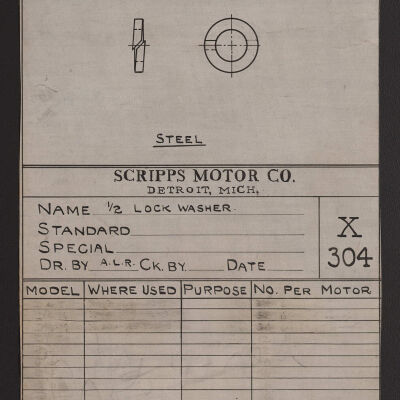 STEEL
SCRIPPS MOTOR CO.
DETROIT, MICH.
NAME 1/2 LOCK WASHER
STANDARD
SPECIAL
DR. BY A.L.R. CK. BY DATE
X
304
MODEL WHERE USED PURPOSE NO. PER MOTOR